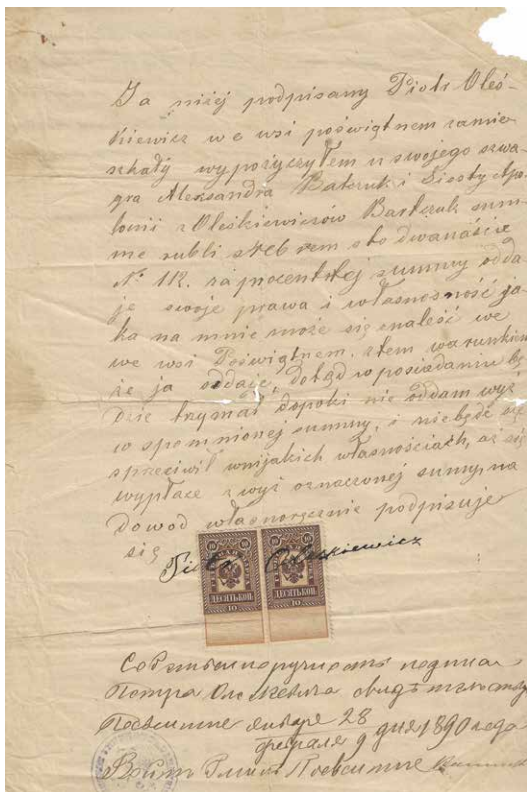 Ja niżej podpisany Piotr Oleś-
kiewicz we wsi poświątnem zamie-
szkały wypożyczyłem u swojego szwa-
gra Aleksandra Bartczuk i Siostry Apo-
lonii z Oleśkiewiczów Bartczuk sum-
me rubli srebrem sto dwanaście
№ 112. za procent tej summy odda
je swoje prawa i własnosność ja-
ka na mnie może się znaleść we
we wsi Poświątnem. z tem warunkiem
że ja oddaje, dotąd w posiadaniu bę
dzie trzymał dopoki nie oddam wyż
wspomnionej summy, i niebęde się
sprzeciwił wnijakich własnościach, aż się
wypłace z wyż oznaczonej sumy, na
dowod własnoręcznie podpisuje
się
Piotr Oleśkiewicz
10 10 10 10
ДЕСЯТЬ КОП. ДЕСЯТЬ КОП.
10 10
подпись
Петра Олескевича
января 28
февраля 9 дня 1890 года
Войтъ Гмины